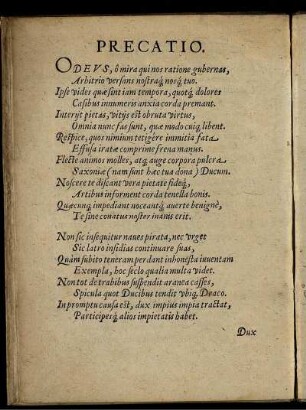 PRECATIO.
O DEVS, ô mira qui nos ratione gubernas,
Arbitrio versans nostraq́; nosq́; tuo.
Ipse vides quæ sint iam tempora, quotq́; dolores
Casibus innumeris anxia corda premant.
Interijt pietas, vitijs est obruta virtus,
Omnia nunc fas sunt, quæ modo cuiq; libent.
Respice, quos nimium tetigere immitia fata
Effusa iratæ comprime frena manus.
Flecte animos molles, atq; auge corpora pulcra
Saxoniæ (nam sunt hæc tua dona) Ducum.
Noscere te discant vera pietate fideq́;,
Artibus informent corda tenella bonis.
Quæcunq; impediant noceantq́; auerte benignè,
Te sine conatus noster inanis erit.
Non sic insequitur naues pirata, nec vrget
Sic latro insidias continuare suas,
Quàm subito teneram perdant inhonesta iuuentam
Exempla, hoc seclo qualia multa videt.
Non tot de trabibus suspendit aranea casses,
Spicula quot Ducibus tendit vbiq; Draco.
In promptu causa est, dux impius impia tractat,
Participesq́; alios impietatis habet.
Dux